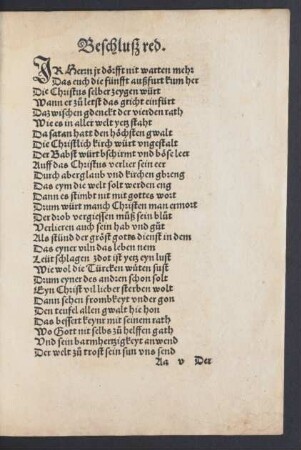 Beschluß red.
IR Herrn jr dörfft nit warten mehr
Das euch die fünfft außfurt kum her
Die Christus selber zeygen würt
Wann er zů letst das gricht einfürt
Daz wischen gdenckt der vierden rath
Wie es in aller welt yetz staht
Da satan hatt den höchsten gwalt
Die Christlich kirch würt vngestalt
Der Babst würt bschirmt vnd böse leer
Auff das Christus verlier sein eer
Durch aberglaub vnd kirchen gbreng
Das eym die welt solt werden eng
Dann es stimbt nit mit gottes wort
Drum würt manch Christen man ermort
Der drob vergiessen můß sein blůt
Verlieren auch sein hab vnd gůt
Als stünd der gröst gotts dienst in dem
Das eyner viln das leben nem
Leüt schlagen zdot ist yetz eyn lust
Wie wol die Türcken wüten sust
Drum eyner des andren schon solt
Eyn Christ vil lieber sterben wolt
Dann sehen frombkeyt vnder gon
Den teufel allen gwalt hie hon
Das bessert keynr mit seinem rath
Wo Gott nit selbs zů helffen gath
Vnd sein barmhertzigkeyt anwend
Der welt zů trost sein sun vns send
Aa v Der